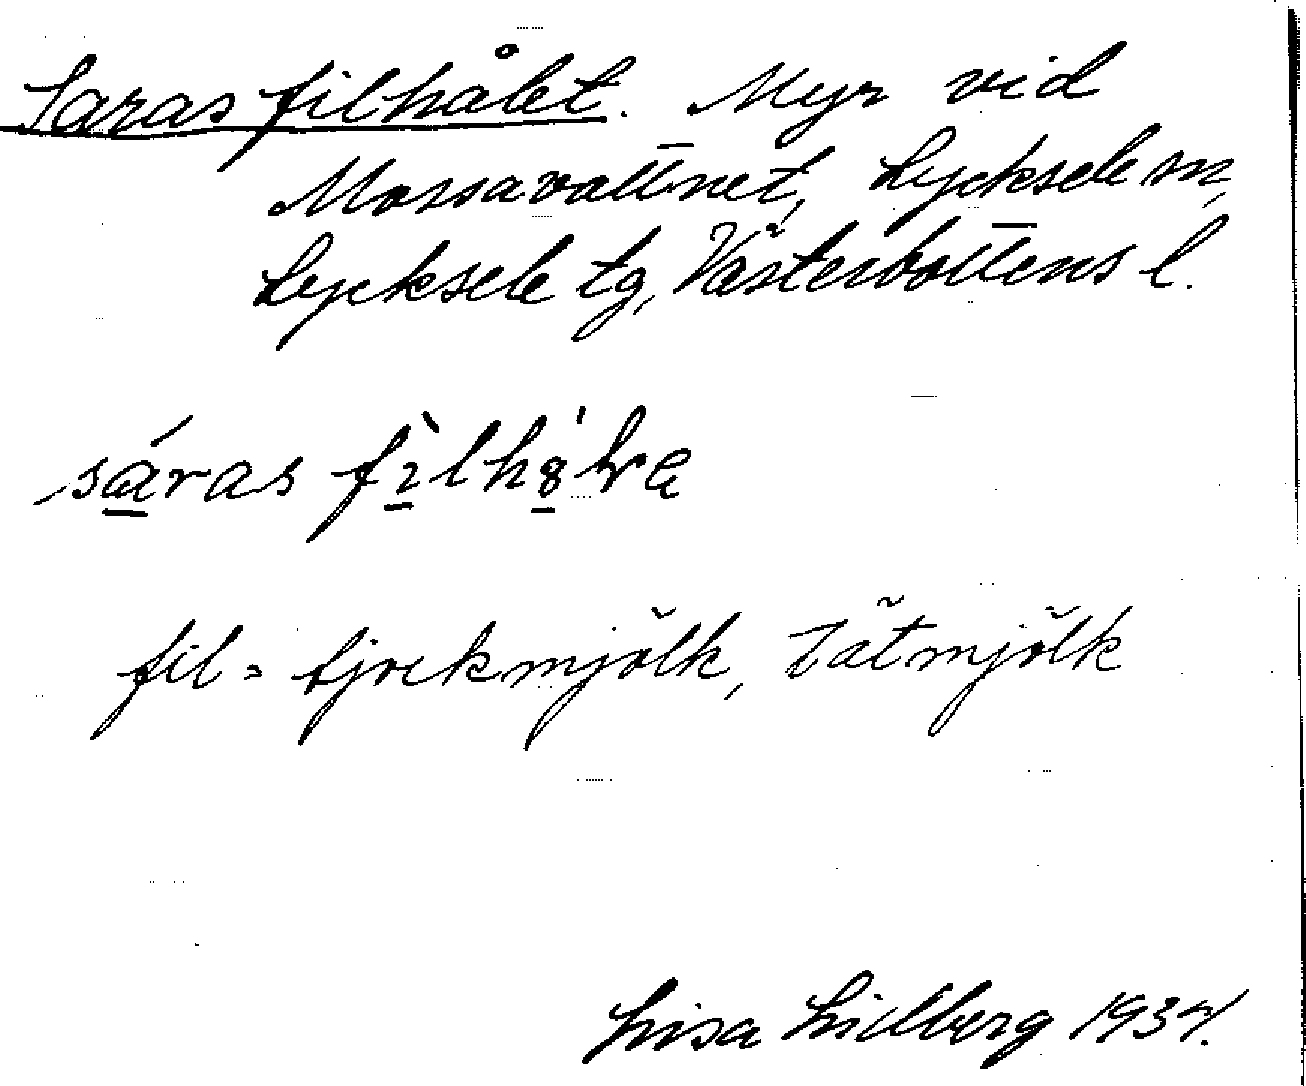 Saras filhålet. Myr vid
Mossavattnet, Lycksele sn,
Lycksele tg, Västerbottens l.
fil = tjockmjölk, tätmjölk
Lisa Lidberg 1934.